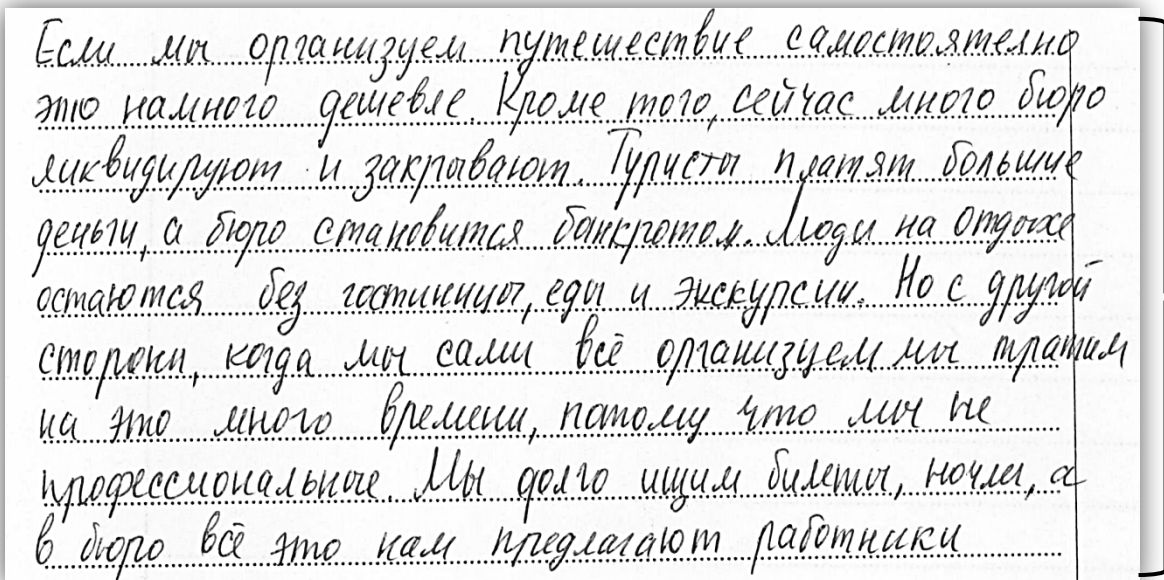 Если мы организуем путешествие самостоятелно
это намного дешевле. Кроме того, сейчас много бюро
ликвидируют и закрывают. Туристы платят большие
деньги, а бюро становится банкротом. Люди на отдыхе
остаются без гостиницы, еды и экскурсии. Но с другой
стороны, когда мы сами всё организуем мы тратим
на это много времени, патому что мы не
профессиональные. Мы долго ищим билеты, ночлег, а
в бюро всё это нам предлагают работники